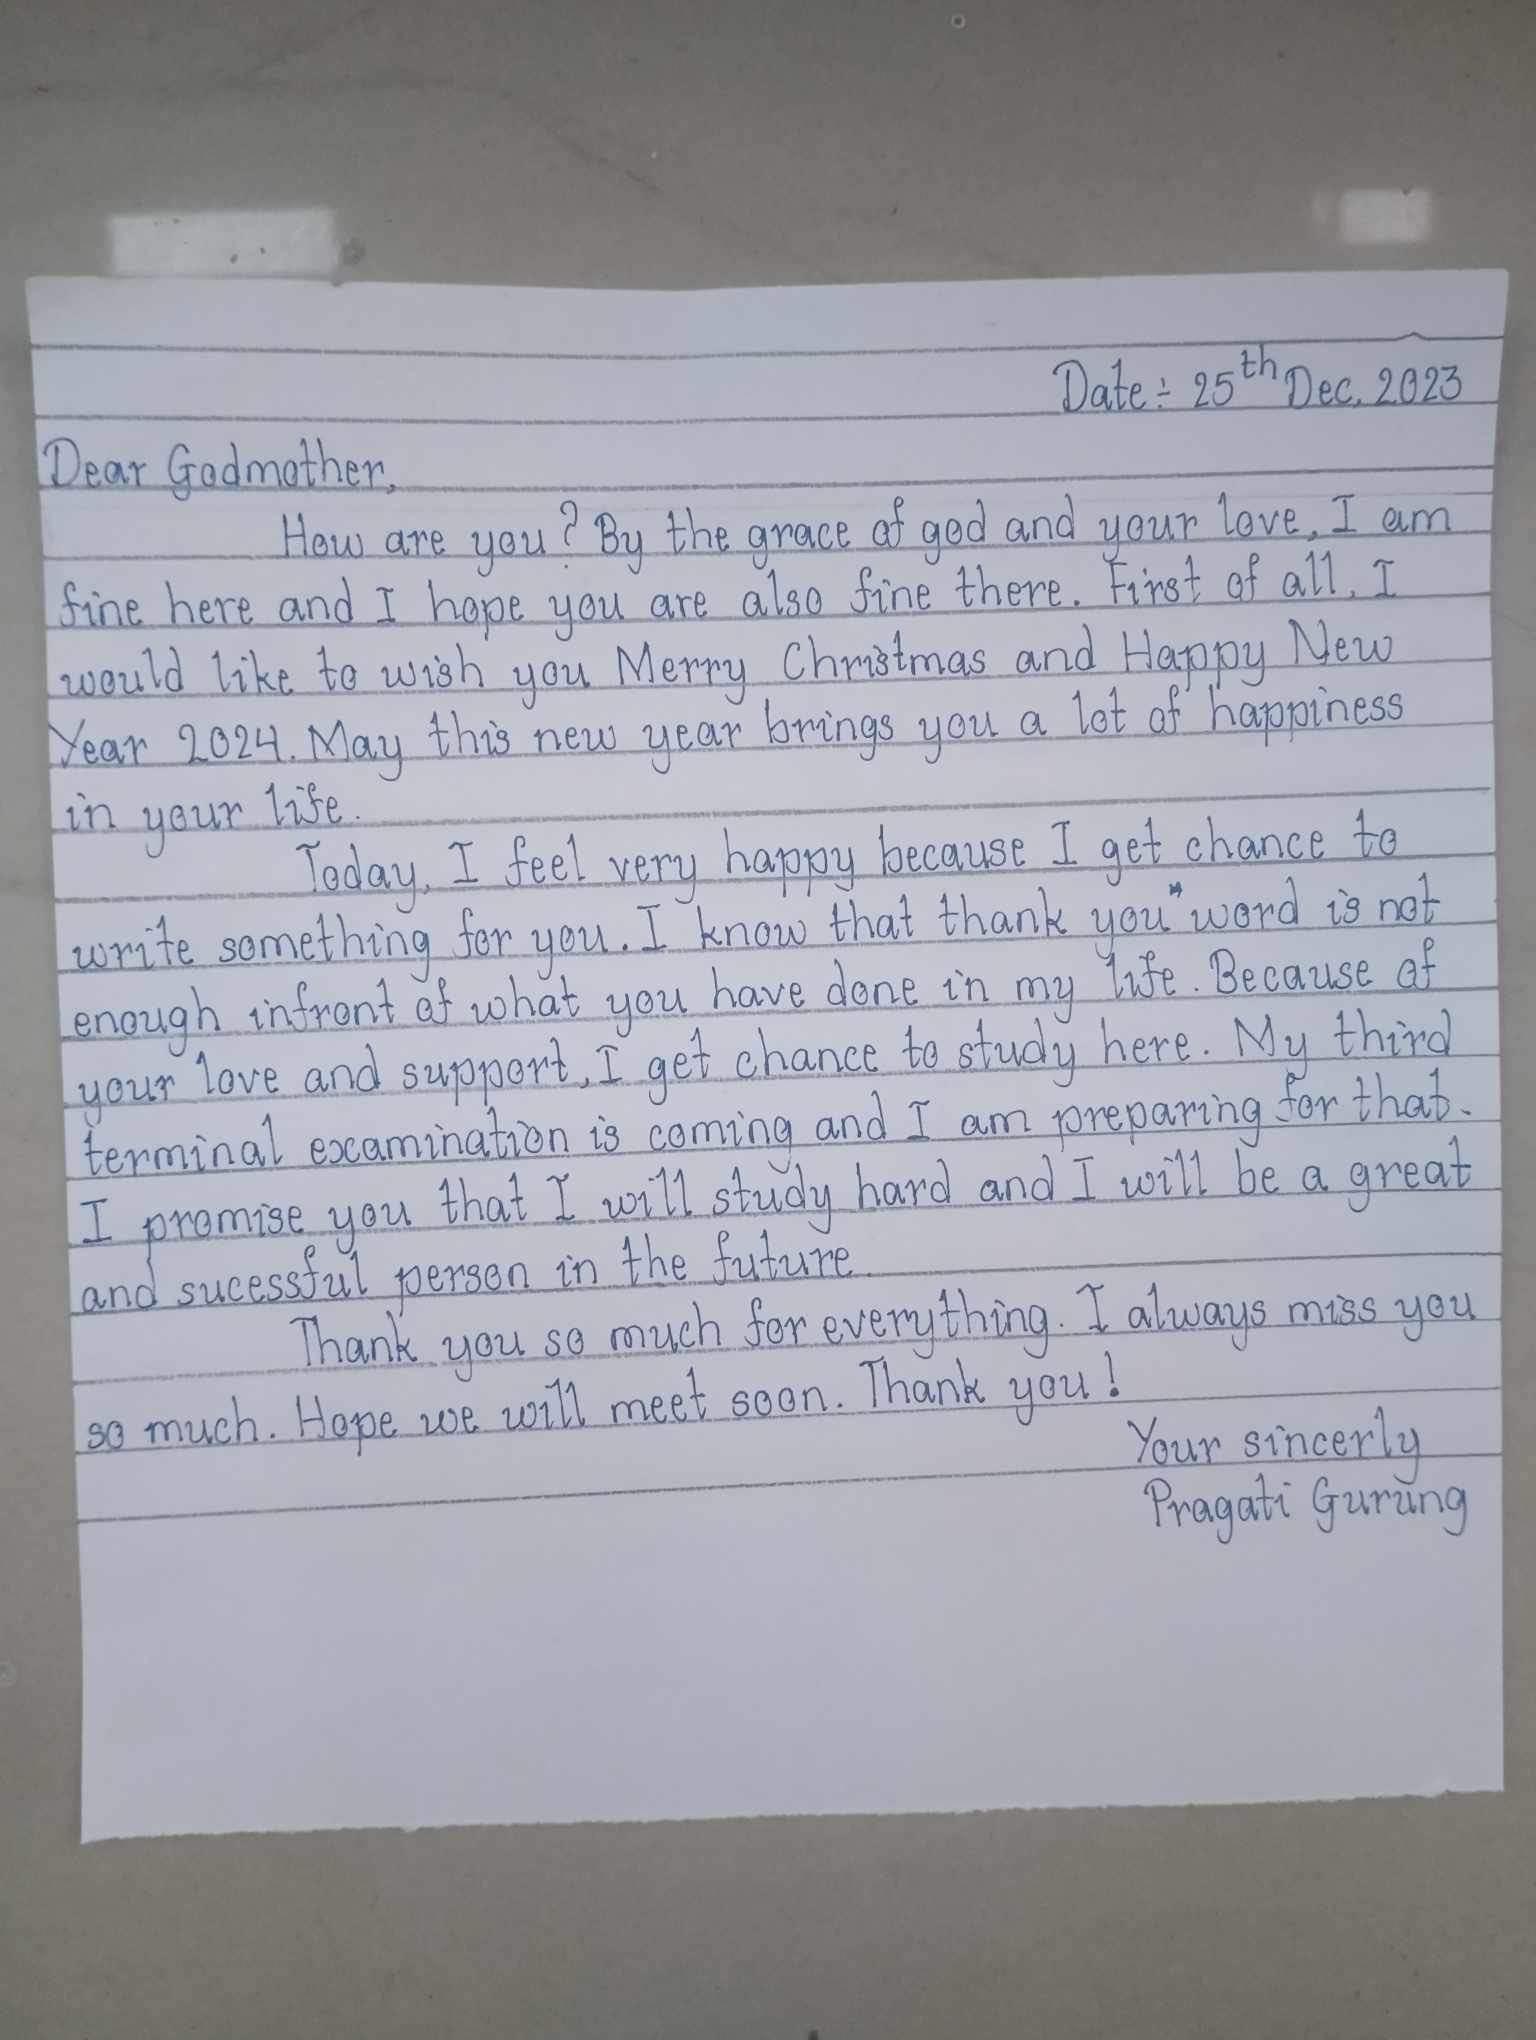 Date:- 25th Dec. 2023
Dear Godmother,
How are you? By the grace of god and your love, I am
fine here and I hope you are also fine there. First of all, I
would like to wish you Merry Christmas and Happy New
Year 2024. May this new year brings you a lot of happiness
in your life.
Today, I feel very happy because I get chance to
write something for you. I know that thank you" word is not
enough infront of what you have done in my life. Because of
your love and support, I get chance to study here. My third
terminal examination is coming and I am preparing for that.
I promise you that I will study hard and I will be a great
and sucessful person in the future.
Thank you so much for everything. I always miss you
so much. Hope we will meet soon. Thank you!
Your sincerly
Pragati Gurung